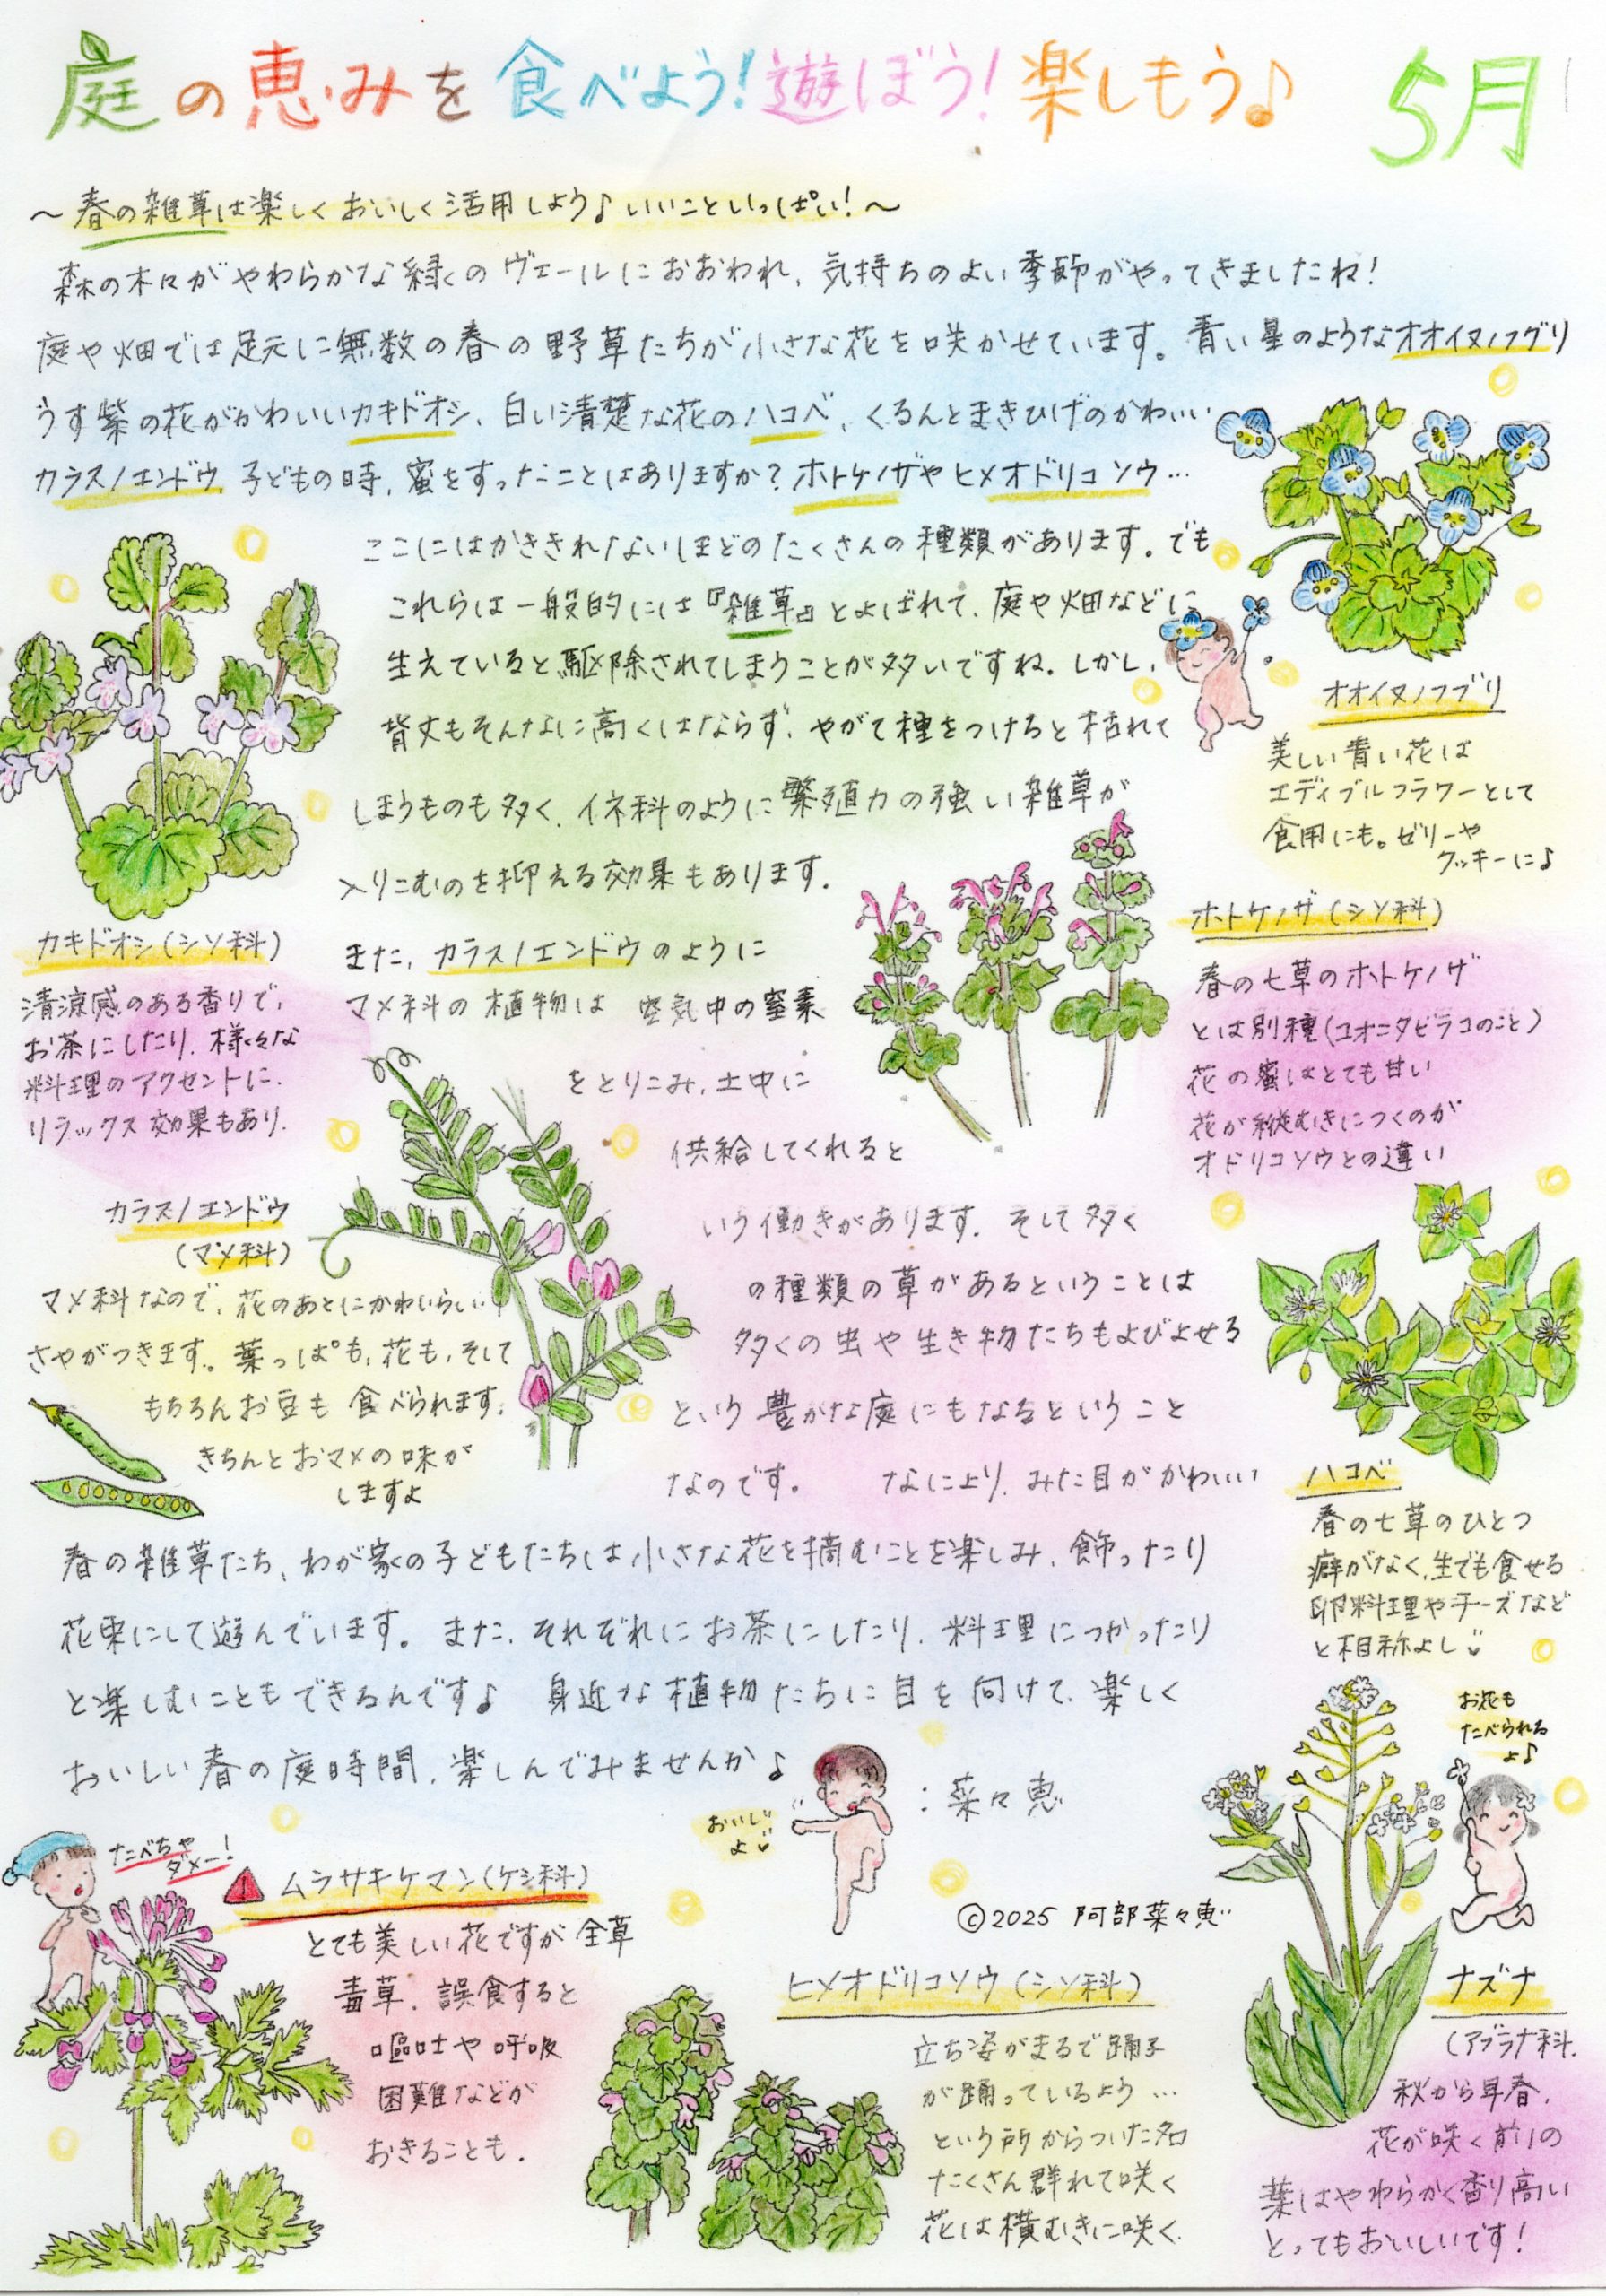 庭の恵みを食べよう!遊ぼう!楽しもう♪ 5月
～春の雑草は楽しくおいしく活用しよう♪いいこといっぱい!～
森の木々がやわらかな緑のヴェールにおおわれ、気持ちのよい季節がやってきましたね!
庭や畑では足元に無数の春の野草たちが小さな花を咲かせています。青い星のようなオオイヌノフグリ
うす紫の花がかわいいカキドオシ、白い清楚な花のハコベ、くるんとまきひげのかわいい
カラスノエンドウ、子どもの時、蜜をすったことはありますか?ホトケノザやヒメオドリコソウ…
ここにはかききれないほどのたくさんの種類があります。でも
これらは一般的には『雑草』とよばれて、庭や畑などに
生えていると駆除されてしまうことが多いですね。しかし、
背丈もそんなに高くはならず、やがて種をつけると枯れて
しまうものも多く、イネ科のように繁殖力の強い雑草が
入りこむのを抑える効果もあります。
また、カラスノエンドウのように
マメ科の植物は 空気中の窒素
をとりこみ、土中に
供給してくれると
いう働きがあります。そして多く
の種類の草があるということは
多くの虫や生き物たちもよびよせる
という豊かな庭にもなるということ
なのです。 なにより、みた目がかわいい
春の雑草たち、わが家の子どもたちは小さな花を摘むことを楽しみ、飾ったり
花束にして遊んでいます。また、それぞれにお茶にしたり、料理につかったり
と楽しむこともできるんです♪ 身近な植物たちに目を向けて、楽しく
おいしい春の庭時間、楽しんでみませんか♪
:菜々恵
おいしいよ
オオイヌノフグリ
美しい青い花は
エディブルフラワーとして
食用にも。ゼリーや
クッキーに♪
カキドオシ(シソ科)
清涼感のある香りで、
お茶にしたり、様々な
料理のアクセントに.
リラックス効果もあり.
ホトケノザ(シソ科)
春の七草のホトケノザ
とは別種(コオニタビラコのこと)
花の蜜はとても甘い
花が縦むきにつくのが
オドリコソウとの違い
カラスノエンドウ
(マメ科)
マメ科なので、花のあとにかわいらしい
さやがつきます。葉っぱも、花も、そして
もちろんお豆も食べられます。
きちんとおマメの味が
しますよ
ハコベ
春の七草のひとつ
癖がなく、生でも食せる
卵料理やチーズなど
と相称よし
お花も
たべられる
よ♪
たべちゃ
ダメー!
ムラサキケマン(ケシ科)
とても美しい花ですが全草
毒草、誤食すると
嘔吐や呼吸
困難などが
おきることも.
©2025 阿部菜々恵
ヒメオドリコソウ(シソ科)
立ち姿がまるで踊子
が踊っているよう…
という所からついた名
たくさん群れて咲く
花は横むきに咲く.
ナズナ
(アブラナ科.
秋から早春.
花が咲く前の
葉はやわらかく香り高い
とってもおいしいです!